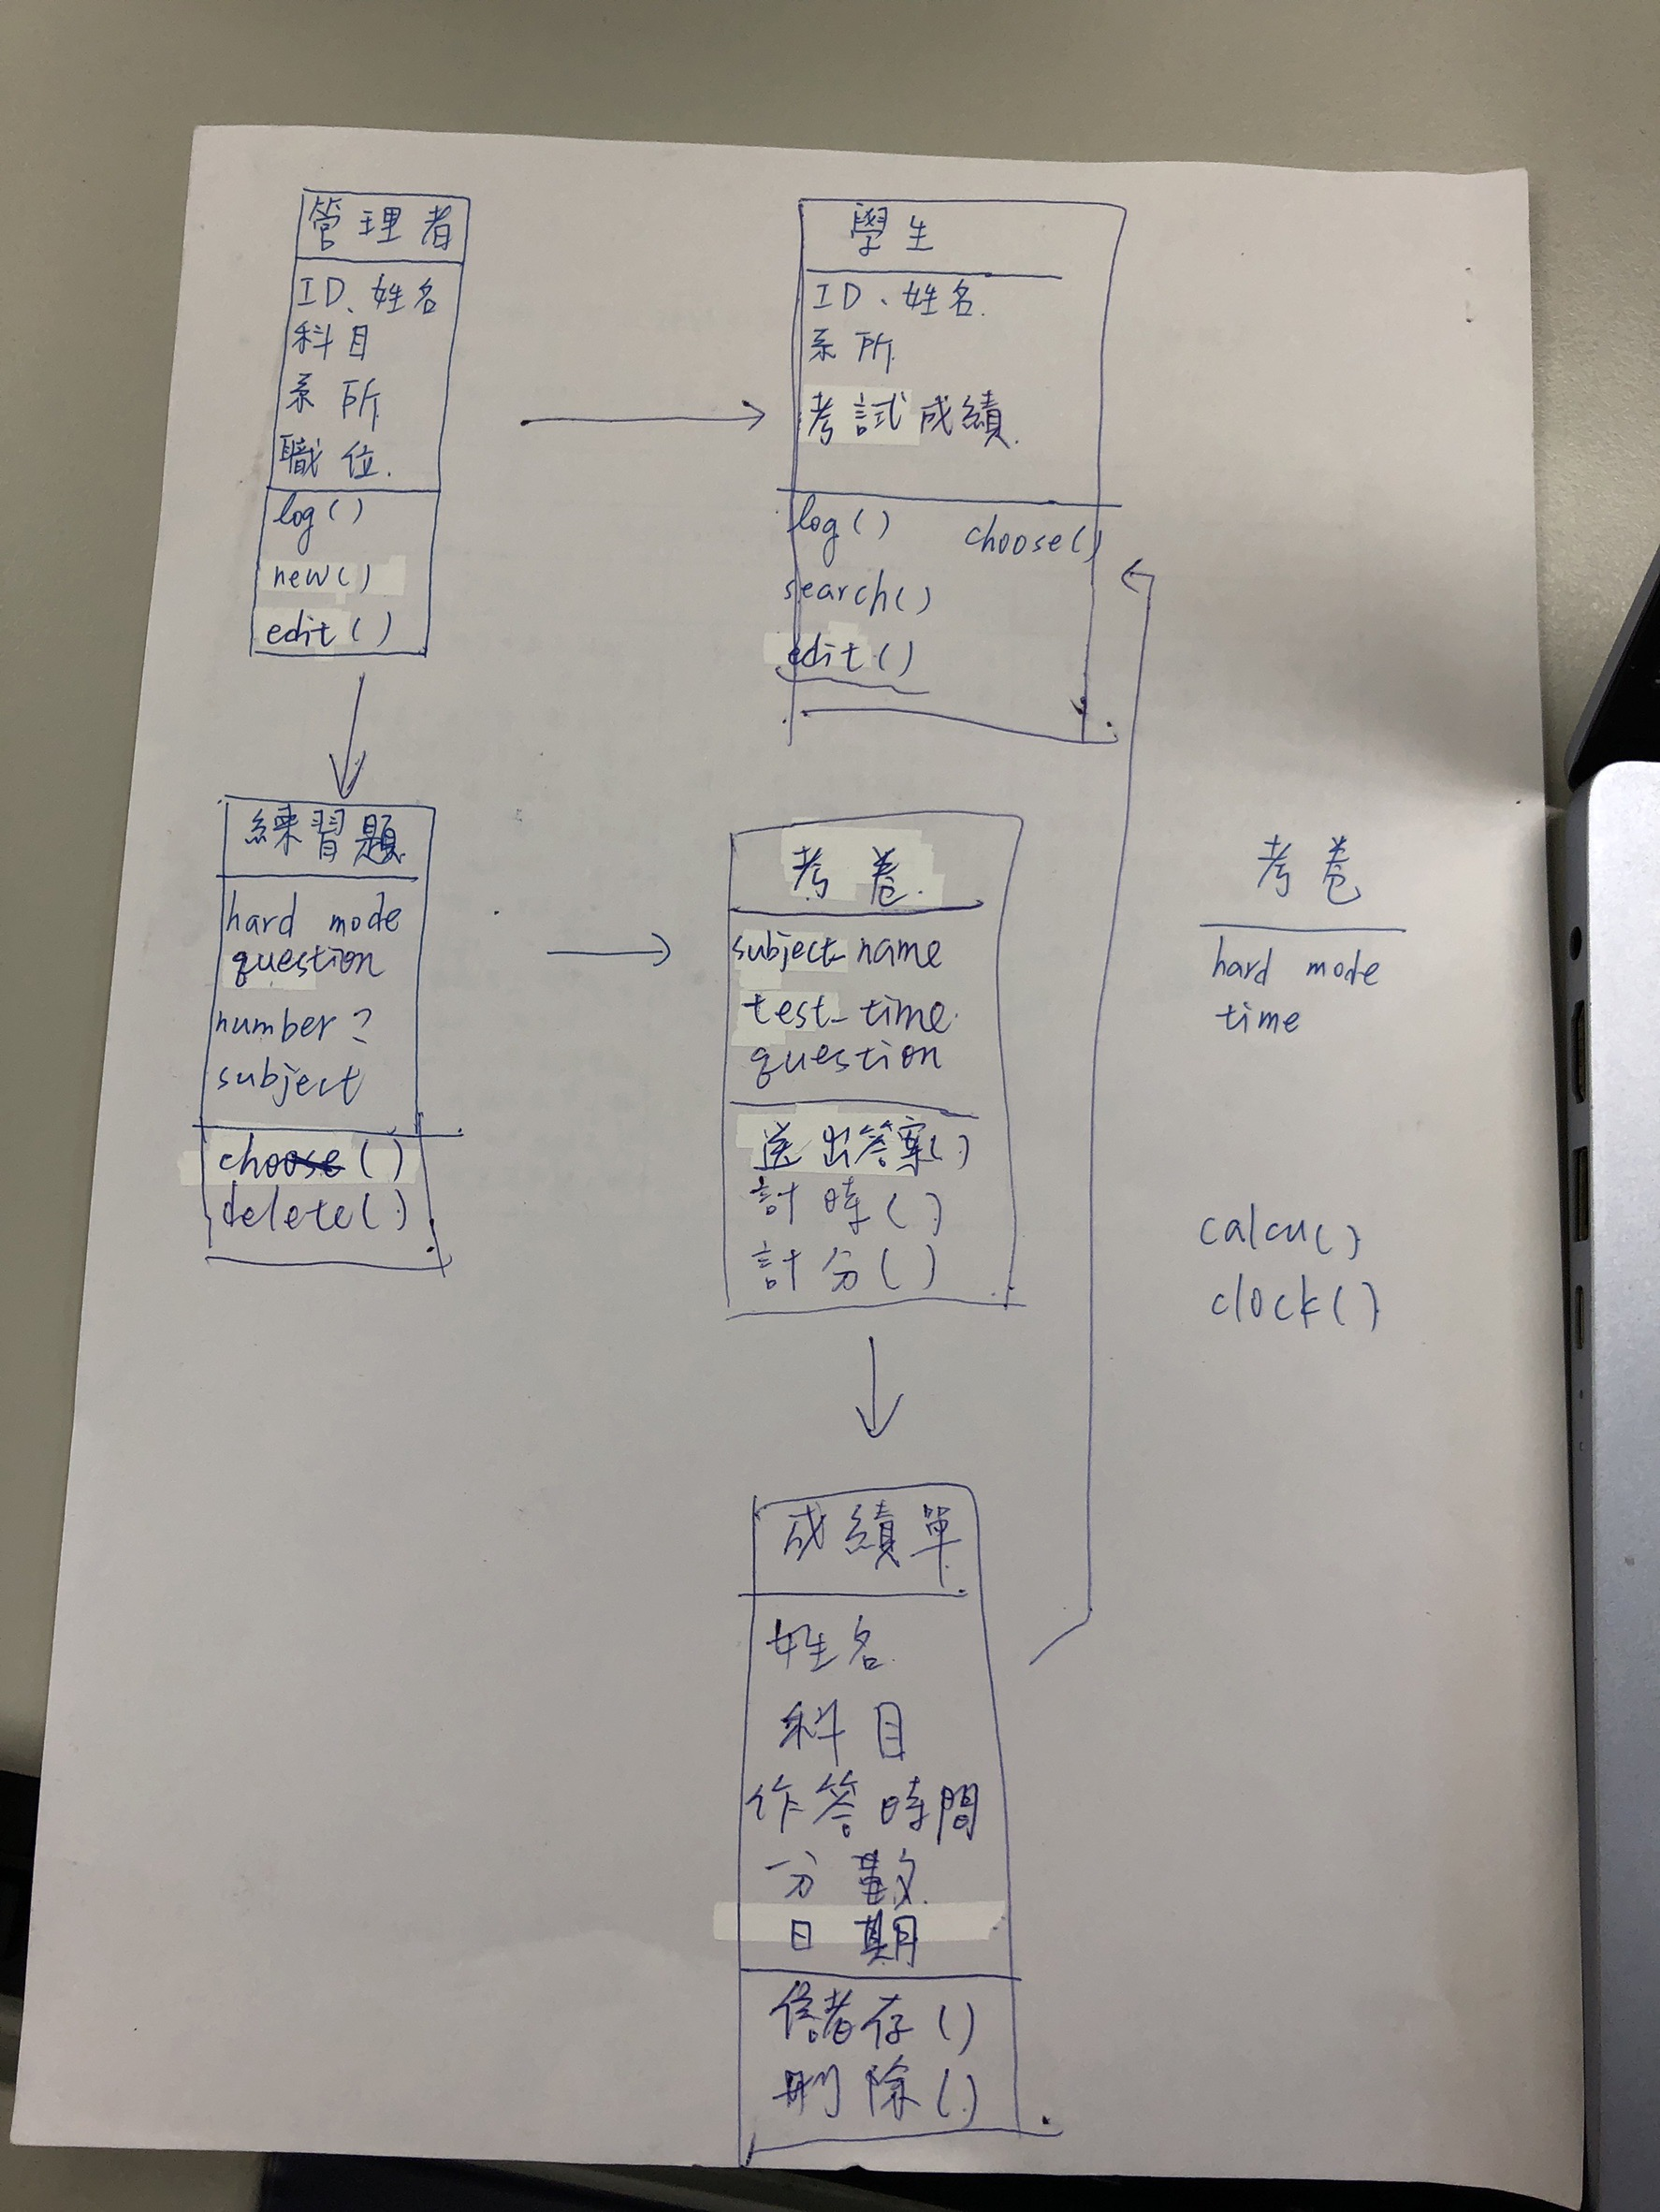 管理者
ID、姓名
科目
系所
職位.
log()
new()
edit()
學生
ID、姓名.
系所.
考試成績.
log() choose()
search()
edit()
練習題
hard mode
question
number?
subject
choose()
delete()
考卷.
subject_name
test_time.
question
送出答案()
計時()
計分()
考卷
hard mode
time
calcu()
clock()
成績單
姓名.
科目
作答時間
分數.
日期
儲存()
刪除()